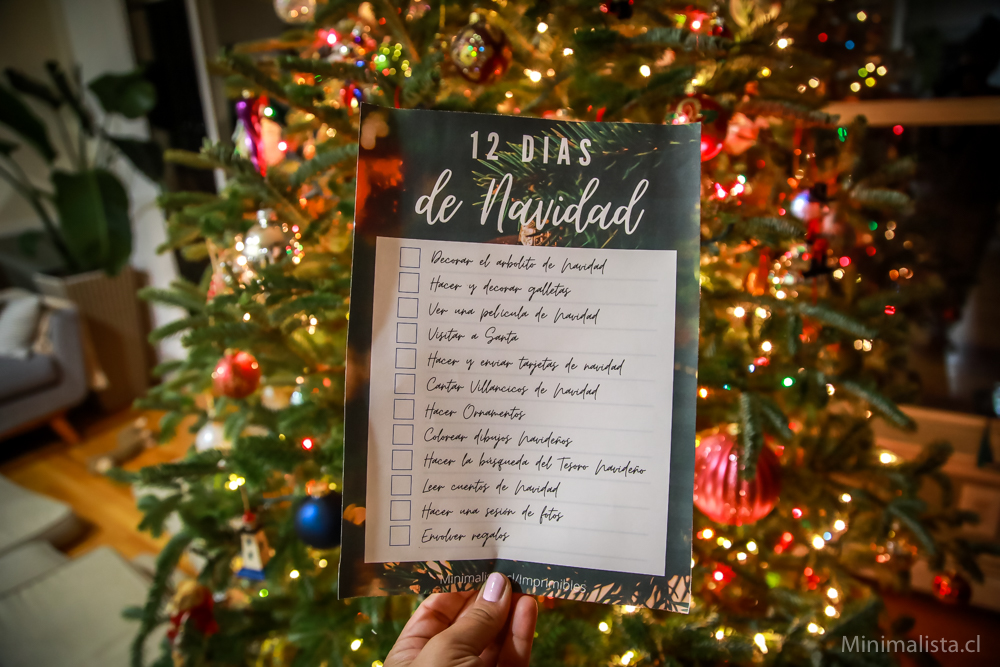 12 DIAS
de Navidad
Decorar el arbolito de Navidad
Hacer y decorar galletas
Ver una película de Navidad
Visitar a Santa
Hacer y enviar tarjetas de navidad
Cantar Villancicos de Navidad
Hacer Ornamentos
Colorear dibujos Navideños
Hacer la búsqueda del Tesoro Navideño
Leer cuentos de Navidad
Hacer una sesión de fotos
Envolver regalos
Minimalista.cl/Imprimibles
Minimalista.cl